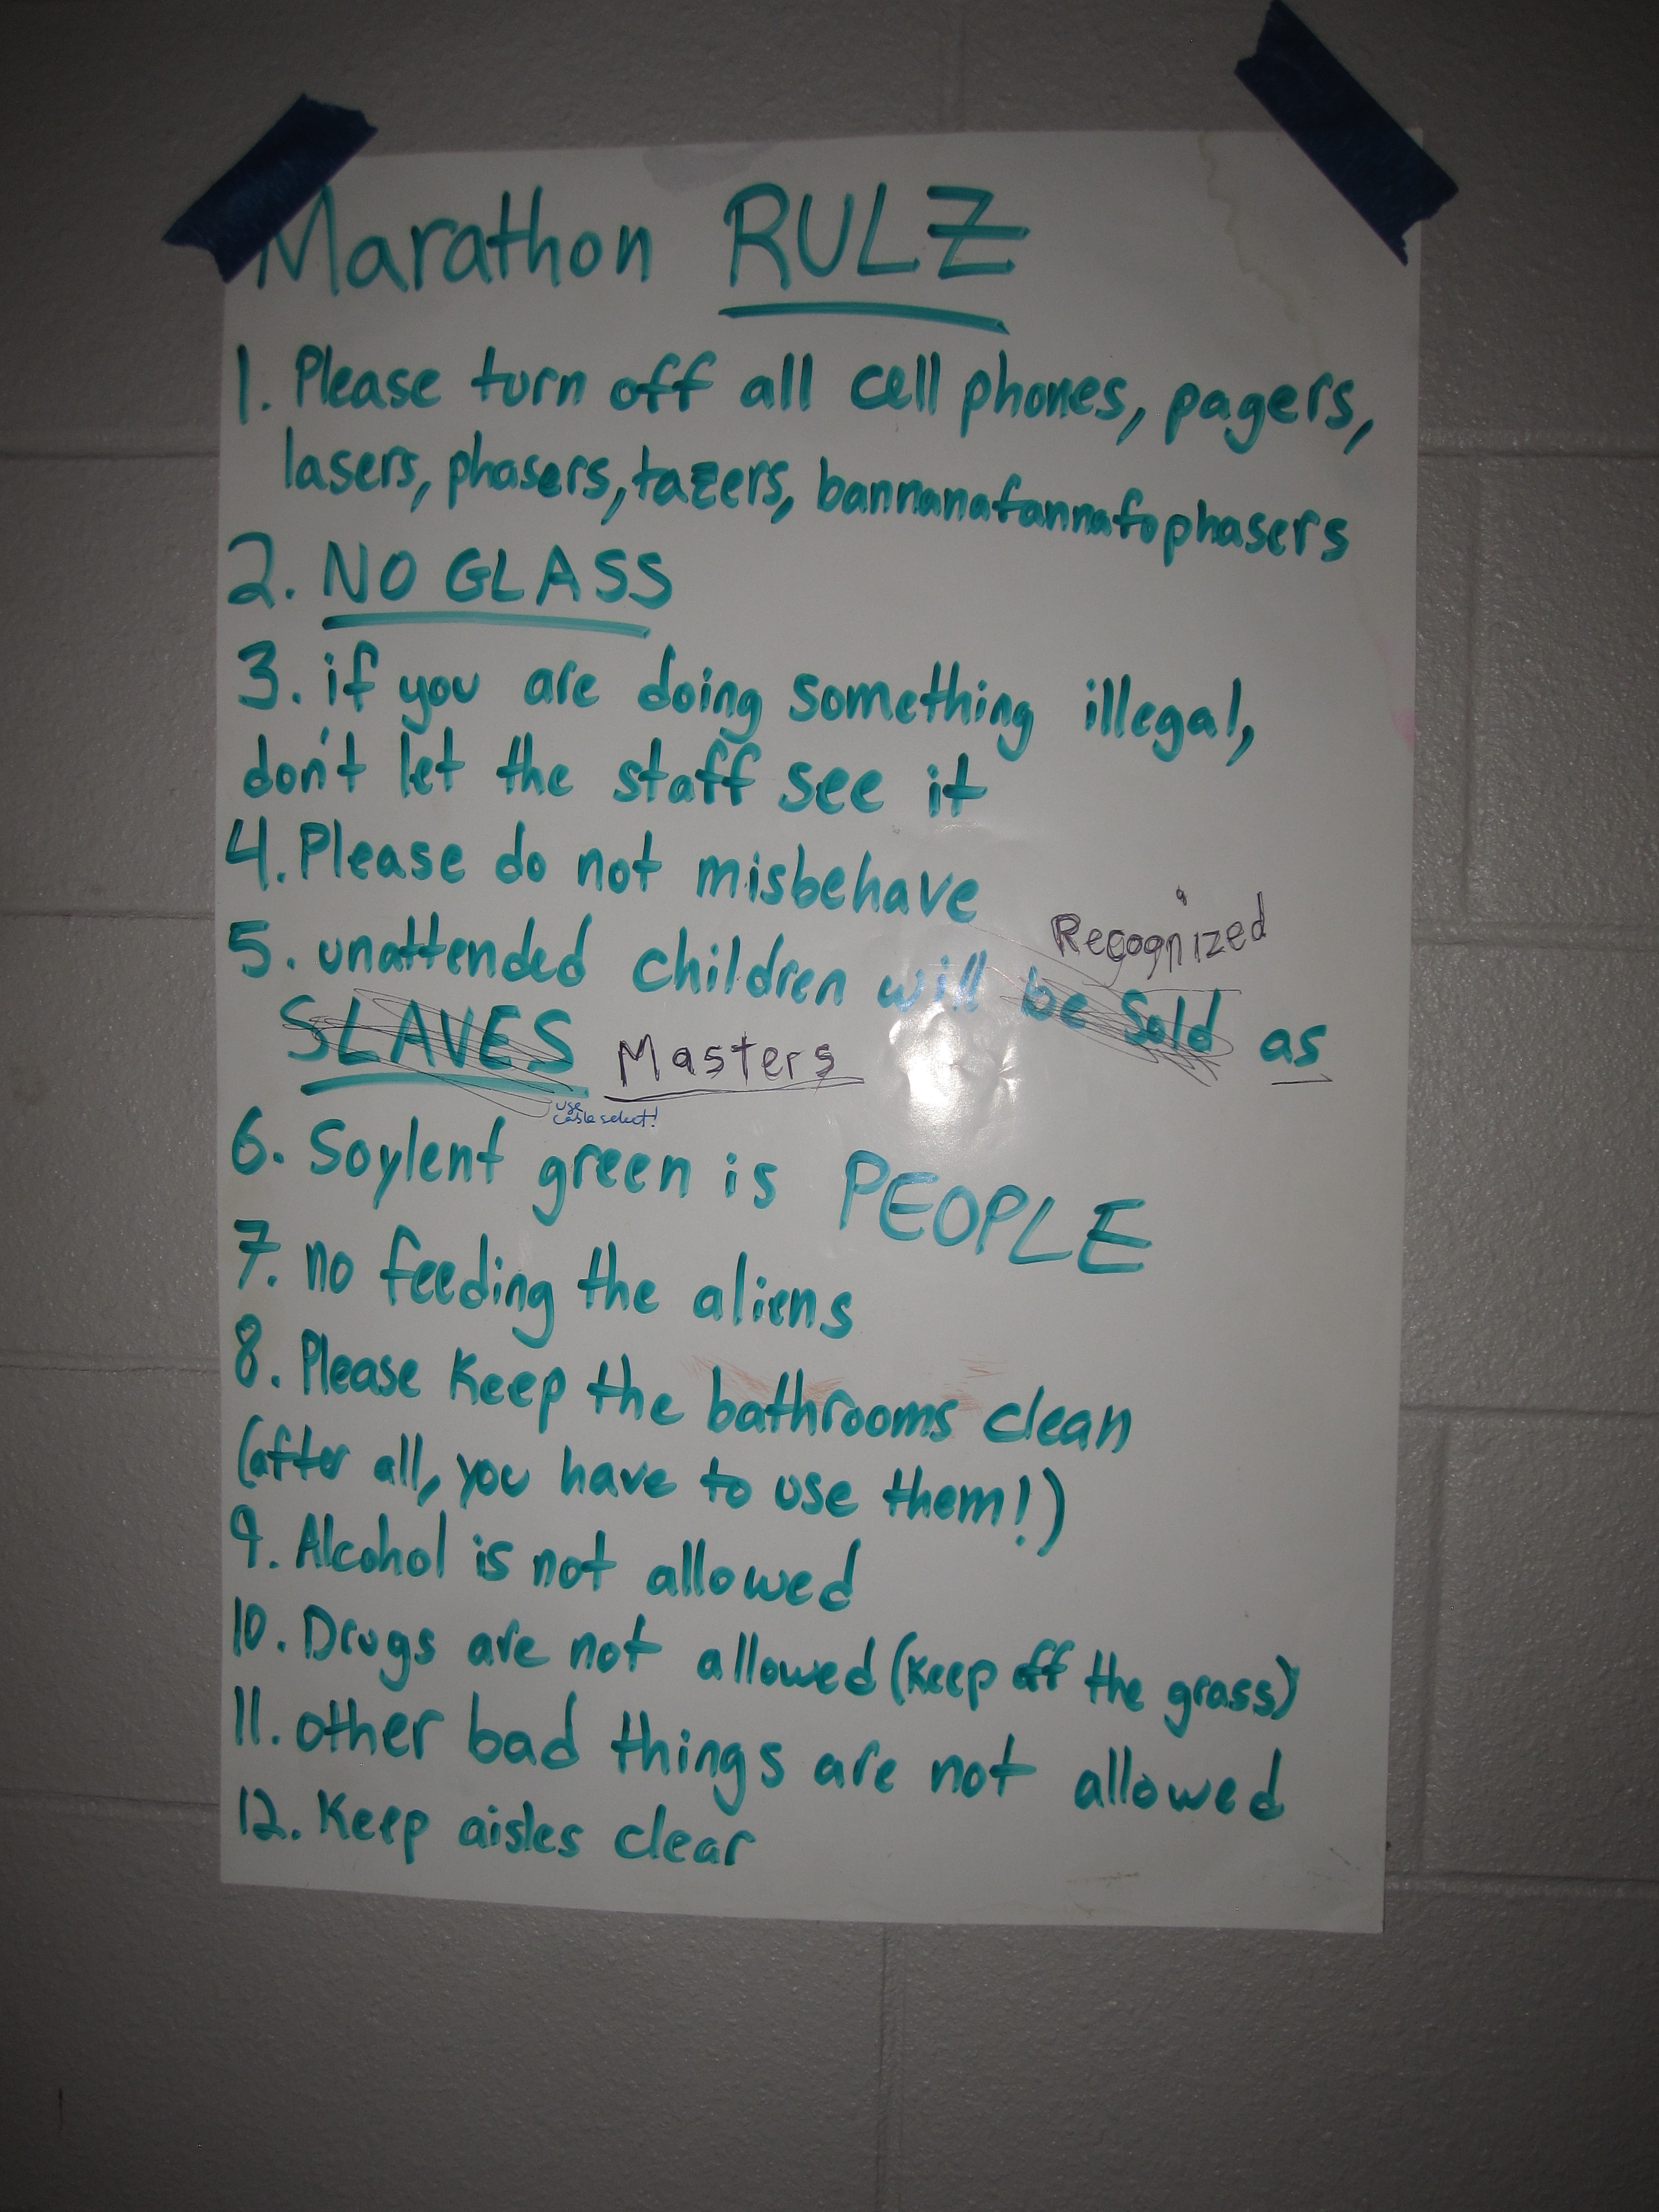 Marathon RULZ
1. Please turn off all cell phones, pagers,
lasers, phasers, tazers, bannanafannafophasers
2. NO GLASS
3. if you are doing something illegal,
don't let the staff see it
4. Please do not misbehave
Recognized
5. unattended children will be Sold as
SLAVES Masters
use
cable select!
6. Soylent green is PEOPLE
7. no feeding the aliens
8. Please Keep the bathrooms clean
(after all, you have to use them!)
9. Alcohol is not allowed
10. Drugs are not allowed (Keep off the grass)
11. other bad things are not allowed
12. Keep aisles clear